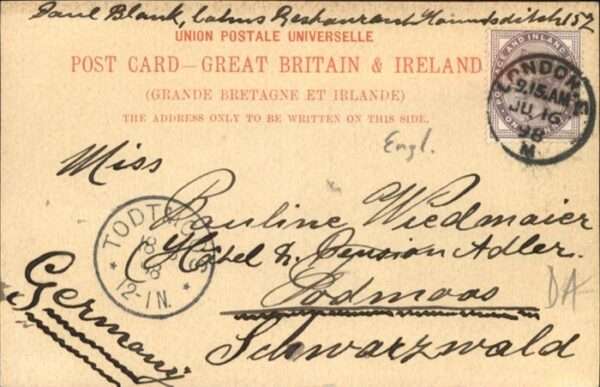 Paul Blank, Cahns Restaurant Houndsditch 157
UNION POSTALE UNIVERSELLE
POST CARD—GREAT BRITAIN & IRELAND
(GRANDE BRETAGNE ET IRLANDE)
THE ADDRESS ONLY TO BE WRITTEN ON THIS SIDE.
POSTAGE AND INLAND
LONDON
9.15.AM
JU 16
98
M
Engl.
Miss
Pauline Wiedmaier
Hôtel & Pension Adler.
Todmoos
Schwarzwald
Germany
12-1N.
DA